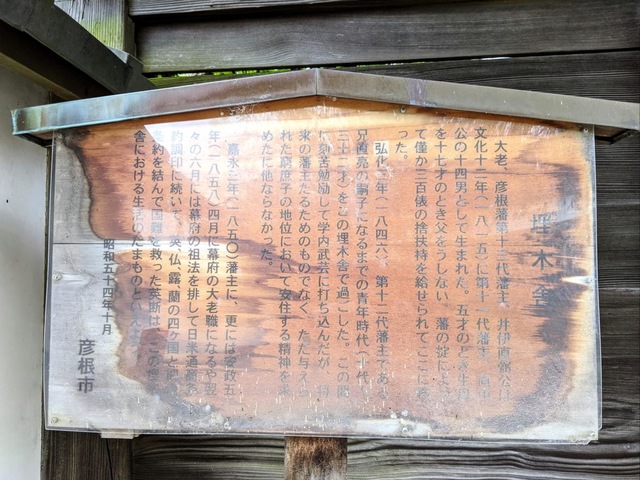 埋木舎
大老、彦根藩第十三代藩主、井伊直弼公は
文化十二年(一八一五)に第十一代藩主、直中
公の十四男として生まれた。五才のとき生母
を十七才のとき父をうしない、藩の掟によっ
て僅か三百俵の捨扶持を給せられてここに移
った。
弘化三年(一八四六)、第十二代藩主であ
兄直亮の嗣子になるまでの青年時代(十七
三十二才)をこの埋木舎で過ごした。この間
に刻苦勉励して学内武芸に打ち込んだが、将
来の藩主たるためのものでなく、ただ与えら
れた庶子の地位において安住する精神を
めたに他ならなかった。
嘉永三年(一八五〇)藩主に、更には安政五
年(一八五八)四月に幕府の大老職になるや翌
々の六月には幕府の祖法を排して日米通商
約調印に続いて、英、仏、露、蘭の四ケ国と
条約を結んで国難を救った英断は、この
舎における生活のたまものといえ
昭和五十四年十月
彦根市